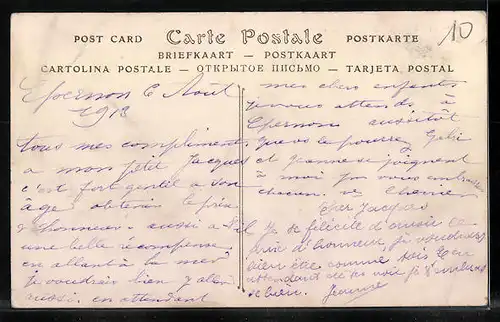 POST CARD Carte Postale POSTKARTE
BRIEFKAART — POSTKAART
CARTOLINA POSTALE — ОТКРЫТОЕ ПИСЬМО — TARJETA POSTAL
10
Epernon 6 Août
1913
tous mes compliments
a mon petit Jacques
c'est fort gentil a son
âge obtenir le prix
d'honneur aussi a t'il
une belle récompense
en allant à la mer
je voudrais bien y aller
aussi. en attendant
mes chers enfants
je vous attends à
Epernon aussitôt
que vs le pourrez
et Jeanne se joignent
à moi pr vous embrasser
chacun.
cher Jacques
Je te félicite d'avoir le
prix d'honneur, je voudrais
bien être comme toi
attendant je t'embrasse
bien. Jeanne